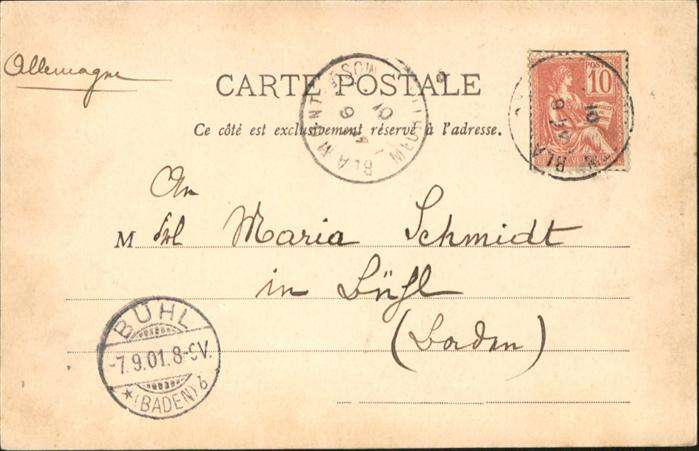 Allemagne
CARTE POSTALE
Ce côté est exclusivement réservé à l'adresse.
POSTES
10
An
M Frl Maria Schmidt
in Bühl
(Baden)
BÜHL
-7.9.01.8-9V.
*(BADEN) b